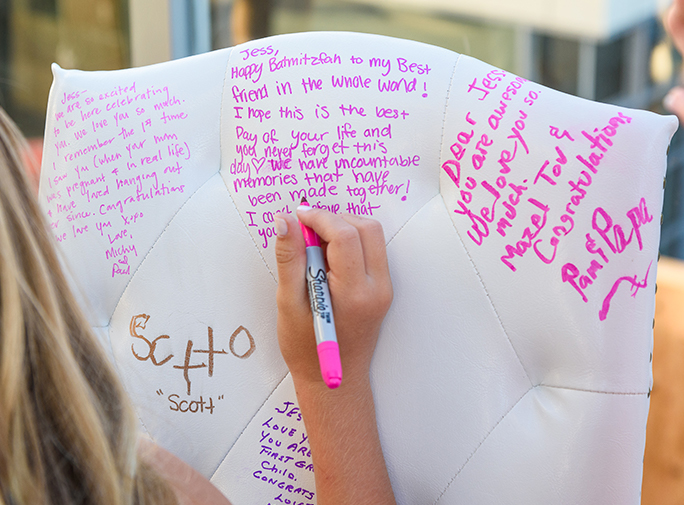 Jess-
We are so excited
to be here celebrating
you. We love you so much.
I remember the 1st time
I saw you (when your mum
was pregnant & in real life)
& have loved hanging out
ever since. Congratulations
we love you xoxo
Love,
Michy
and
Paul
Jess,
Happy Batmitzfah to my Best
friend in the whole world!
I hope this is the best
Day of your life and
you never forget this
day♡ We have uncountable
memories that have
been made together!
I that
you
Dear Jess
you are awesome
We love you so
much.
Mazel Tov &
Congratulations
Pam &
Sharpie
Sctto
"Scott"
Jess
Love
You are
First
Child.
Congrats